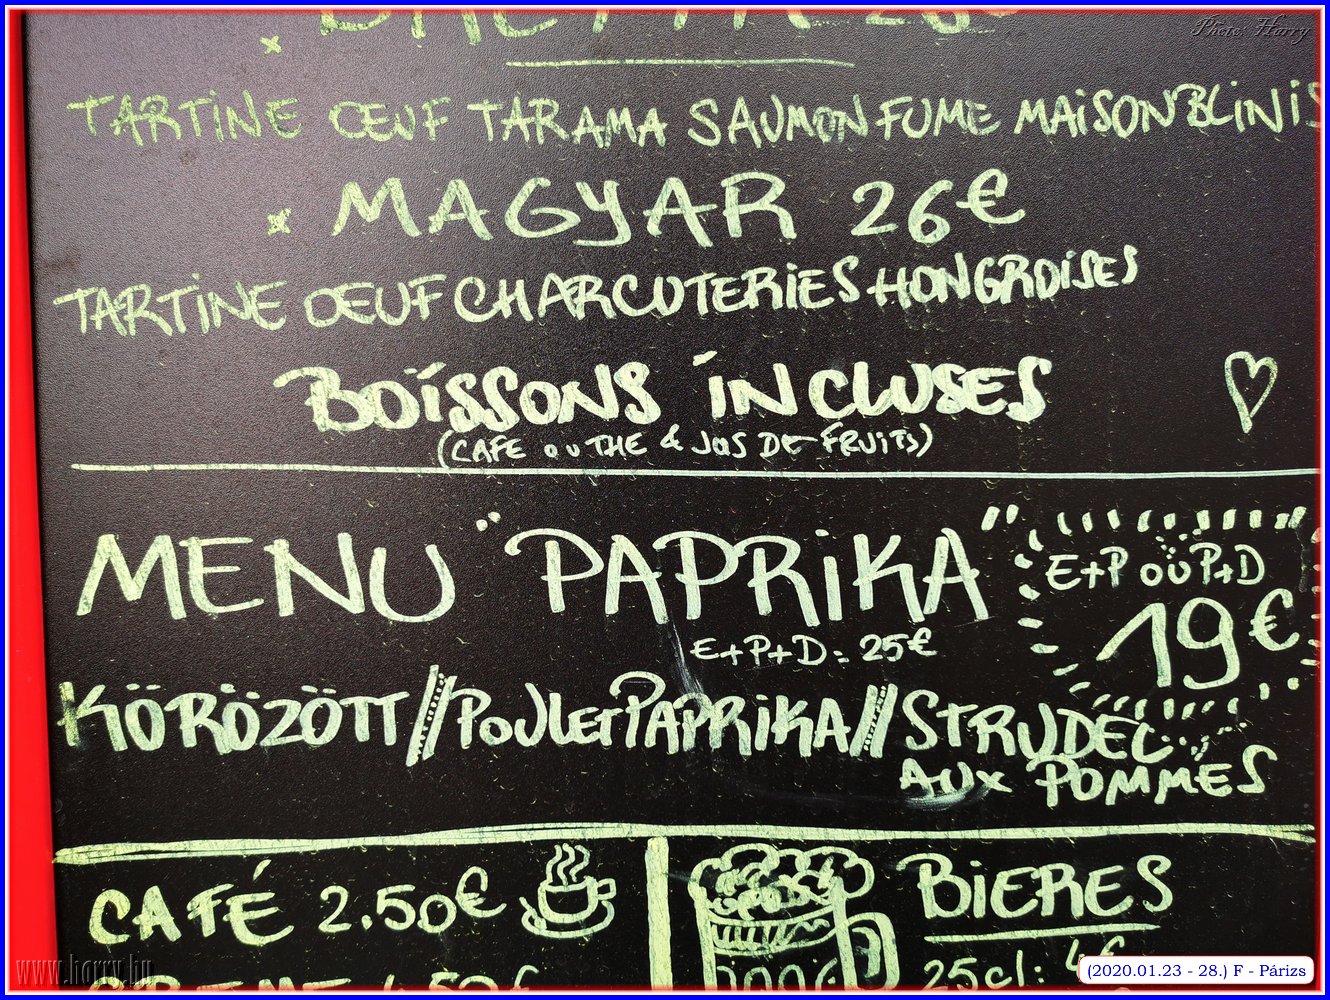 Photo: Harry
26€
TARTINE OEUF TARAMA SAUMON FUME MAISON BLINIS
x MAGYAR 26€
TARTINE OEUF CHARCUTERIES HONGROISES
BOISSONS INCLUSES
(CAFE OU THE & JUS DE FRUITS)
MENU "PAPRIKA"
E+P OU P+D
19€
E+P+D: 25€
KÖRÖZÖTT//POULET PAPRIKA//STRUDEL
AUX POMMES
CAFÉ 2.50€
BIERES
25cl: 4€
4.50€
www.horry.hu
(2020.01.23 - 28.) F - Párizs